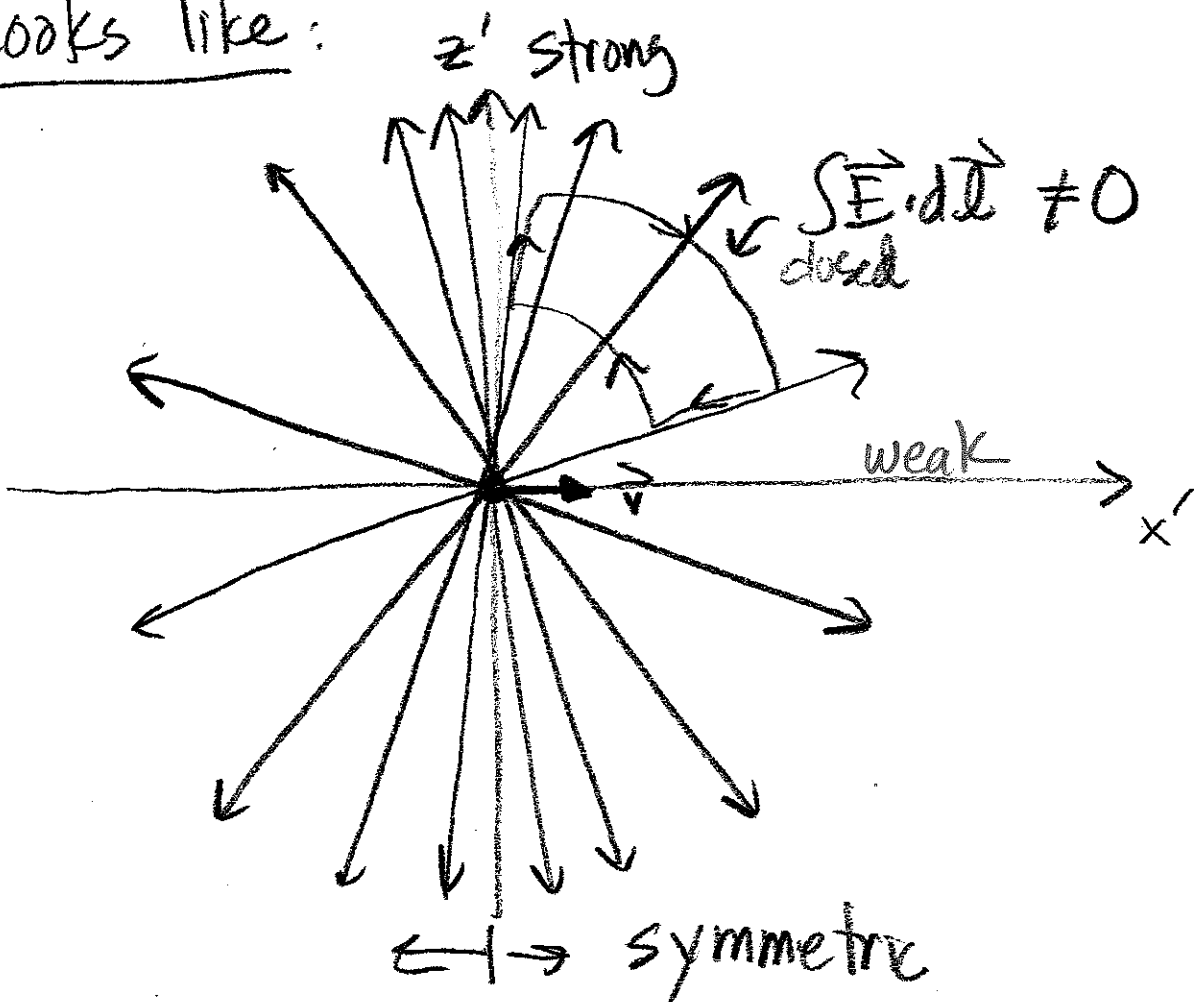 ooks like:
z' strong
∫E⃗·dl⃗ ≠ 0
closed
weak
v⃗
x'
symmetric